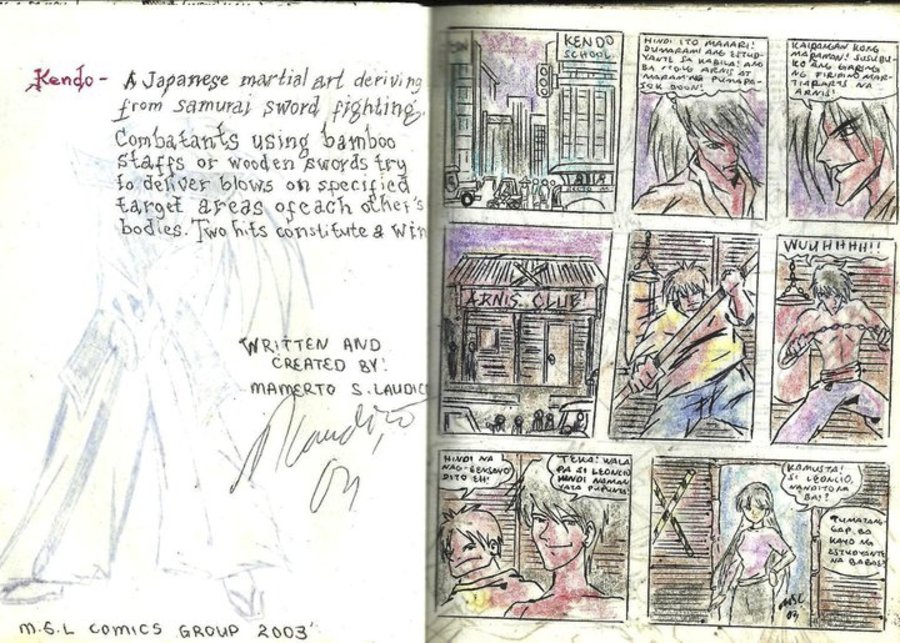 Kendo - A Japanese martial art deriving
from samurai sword fighting,
Combatants using bamboo
staffs or wooden swords try
to deliver blows on specified
target areas of each other's
bodies. Two hits constitute a win
WRITTEN AND
CREATED BY:
MAMERTO S. LAUDICO
Laudico
03
M.S.L COMICS GROUP 2003'
KENDO
SCHOOL
HINDI ITO MAAARI!
DUMARAMI ANG ESTUD-
YANTE SA KABILA! ANO
BA ITONG ARNIS AT
MARAMING PUMAPA-
SOK DOON!
KAILANGAN KONG
MAPAMON! SUSUBU-
KO ANG GALING
NG PILIPINO MAR-
TIAL ARTS NA
ARNIS!
ARNIS CLUB!
WUUHHHH!!
HINDI NA
NAG-EENSAYO
DITO EH!
TEKA! WALA
PA SI LEONCIO
HINDI NAMAN
YATA PUPUNTA!
KAMUSTA!
SI LEONCIO,
NANDITO NA
BA!?
TUMATANG-
GAP BA
KAYO NG
ESTUDYANTE
NA BABAE?
MSL
03